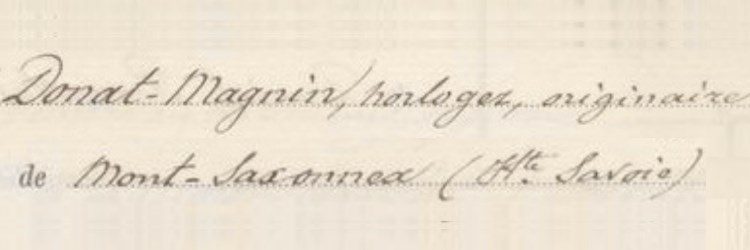 Donat-Magnin), horloger, originaire
de Mont-Saxonnex (Hte. Savoie)